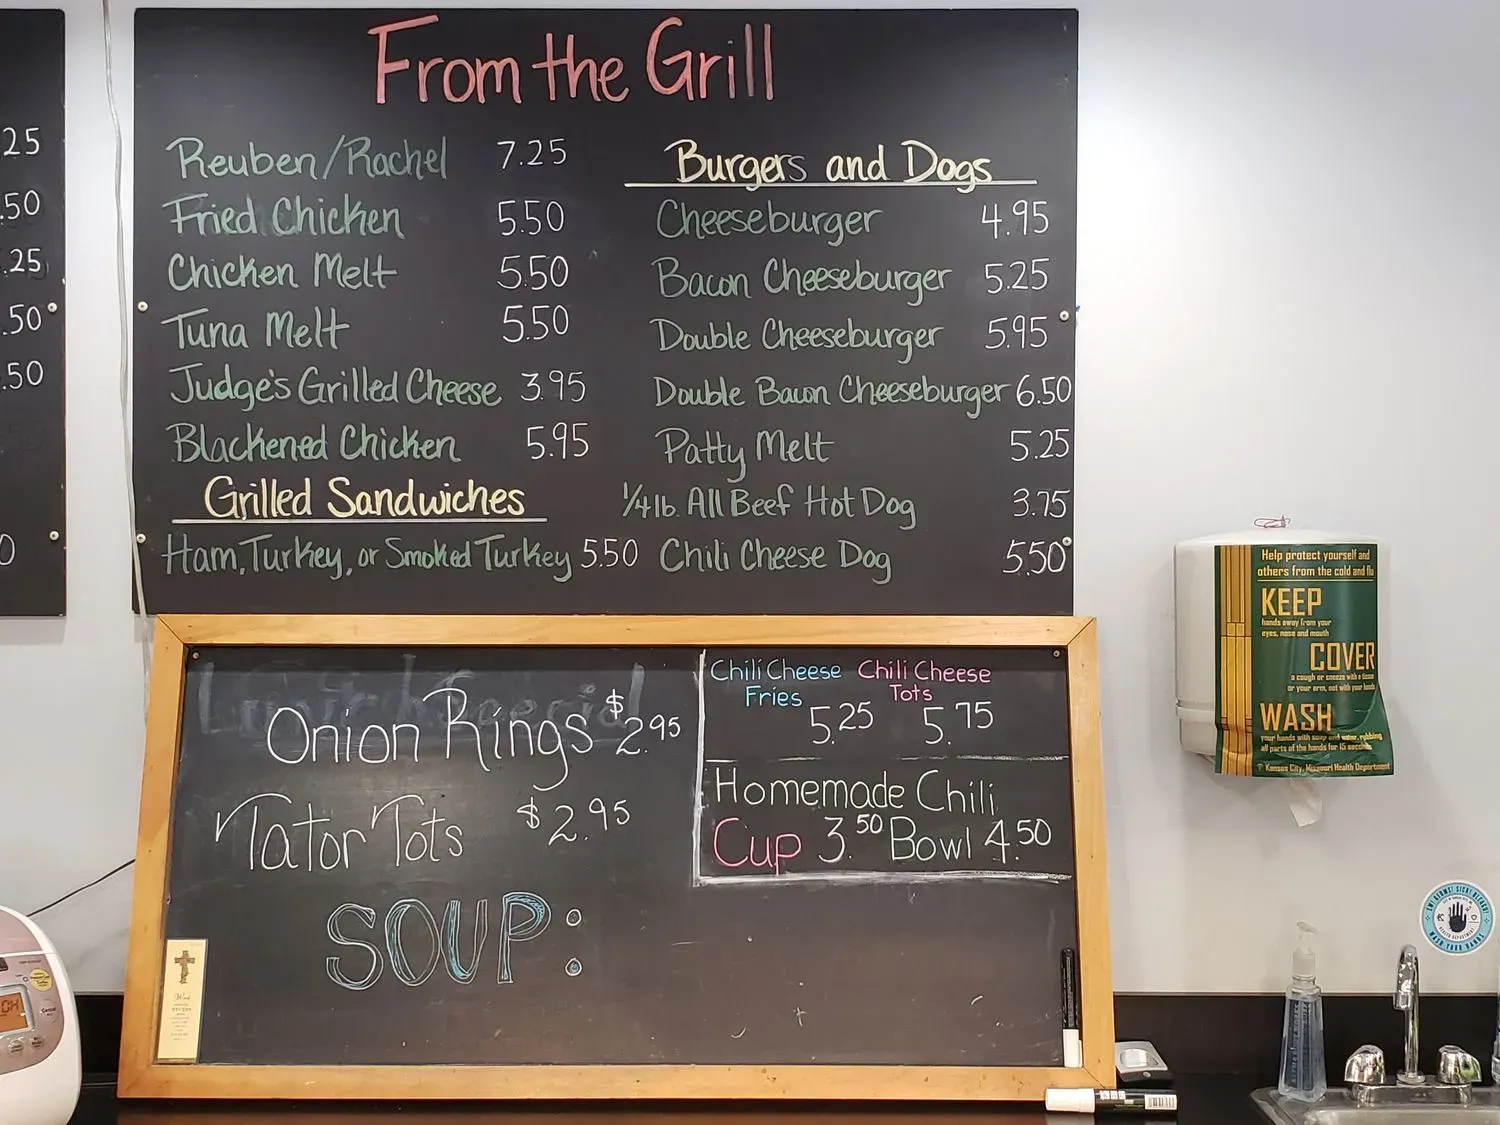 25
.50
.25
.50
.50
0
From the Grill
Reuben/Rachel 7.25
Fried Chicken 5.50
Chicken Melt 5.50
Tuna Melt 5.50
Judge's Grilled Cheese 3.95
Blackened Chicken 5.95
Grilled Sandwiches
Ham, Turkey, or Smoked Turkey 5.50
Burgers and Dogs
Cheeseburger 4.95
Bacon Cheeseburger 5.25
Double Cheeseburger 5.95
Double Bacon Cheeseburger 6.50
Patty Melt 5.25
1/4 lb. All Beef Hot Dog 3.75
Chili Cheese Dog 5.50
Onion Rings $2.95
Tator Tots $2.95
SOUP:
Chili Cheese Fries 5.25
Chili Cheese Tots 5.75
Homemade Chili
Cup 3.50 Bowl 4.50
Help protect yourself and
others from the cold and flu
KEEP
hands away from your
eyes, nose and mouth
COVER
a cough or sneeze with a tissue
or your arm, not with your hands
WASH
your hands with soap and water, rubbing
all parts of the hands for 15 seconds
Kansas City, Missouri Health Department
WASH YOUR HANDS